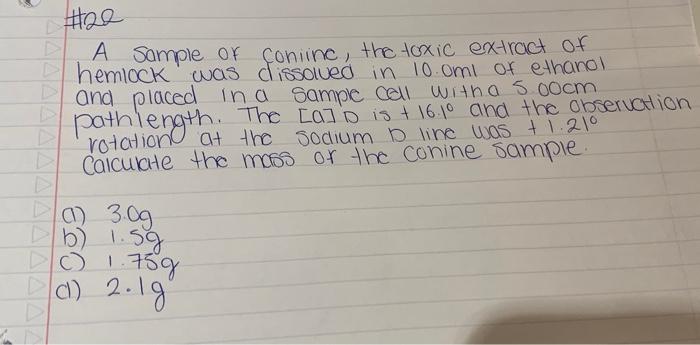 #22
A sample of coniine, the toxic extract of
hemlock was dissolved in 10.0ml of ethanol
and placed in a sample cell with a 5.00cm
pathlength. The [a]D is +16.1° and the observation
rotation at the sodium D line was +1.21°
Calculate the mass of the conine sample.
a) 3.0g
b) 1.5g
c) 1.75g
d) 2.1g